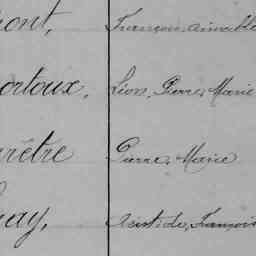 ont, François, Aimable
ortoux, Léon, Pierre, Marie
rêtre Pierre, Marie
ay, Aristide, François